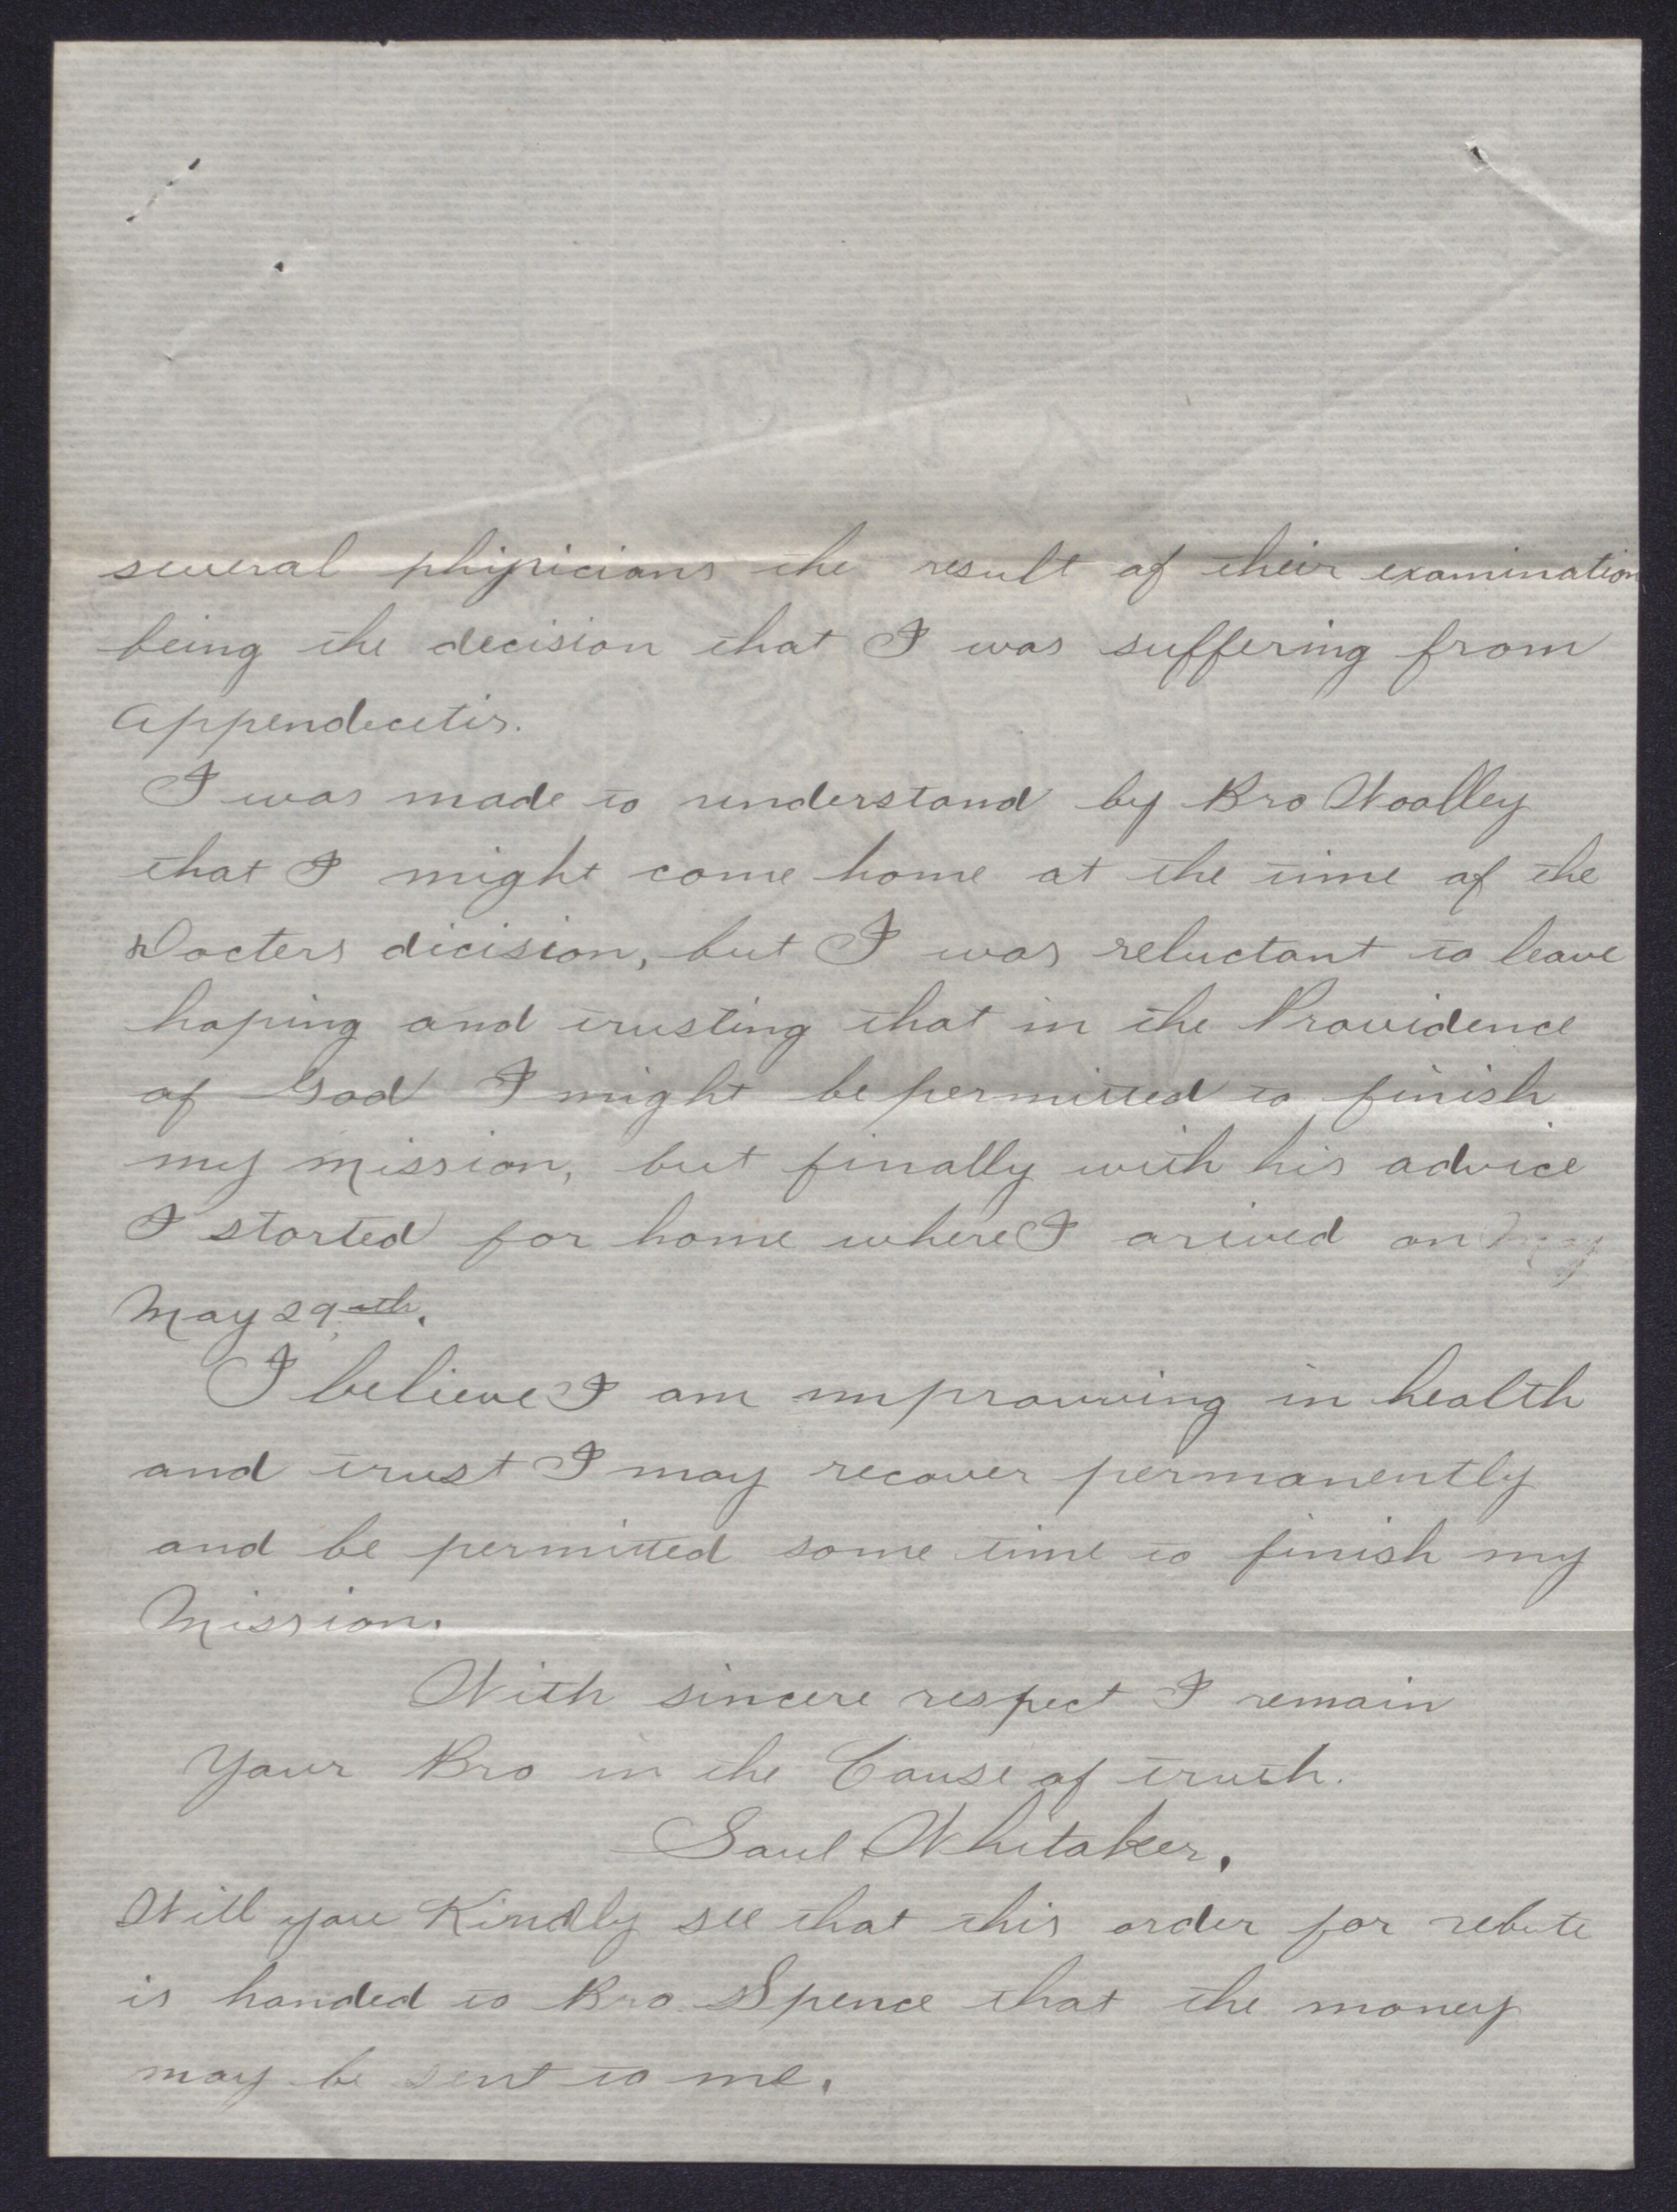 several phisicians the result of their examination
being the decision that I was suffering from
Appendecetis.
I was made to understand by Bro Woolley
that I might come home at the time of the
Docters dicision, but I was reluctant to leave
hoping and trusting that in the Providence
of God I might be permitted to finish
my mission, but finally with his advice
I started for home where I arived on
May 29th.
I believe I am improving in health
and trust I may recover permanently
and be permitted some time to finish my
Mission.
With sincere respect I remain
Your Bro in the Cause of truth.
Saul Whitaker.
Will you Kindly see that this order for rebate
is handed to Bro Spence that the money
may be sent to me.